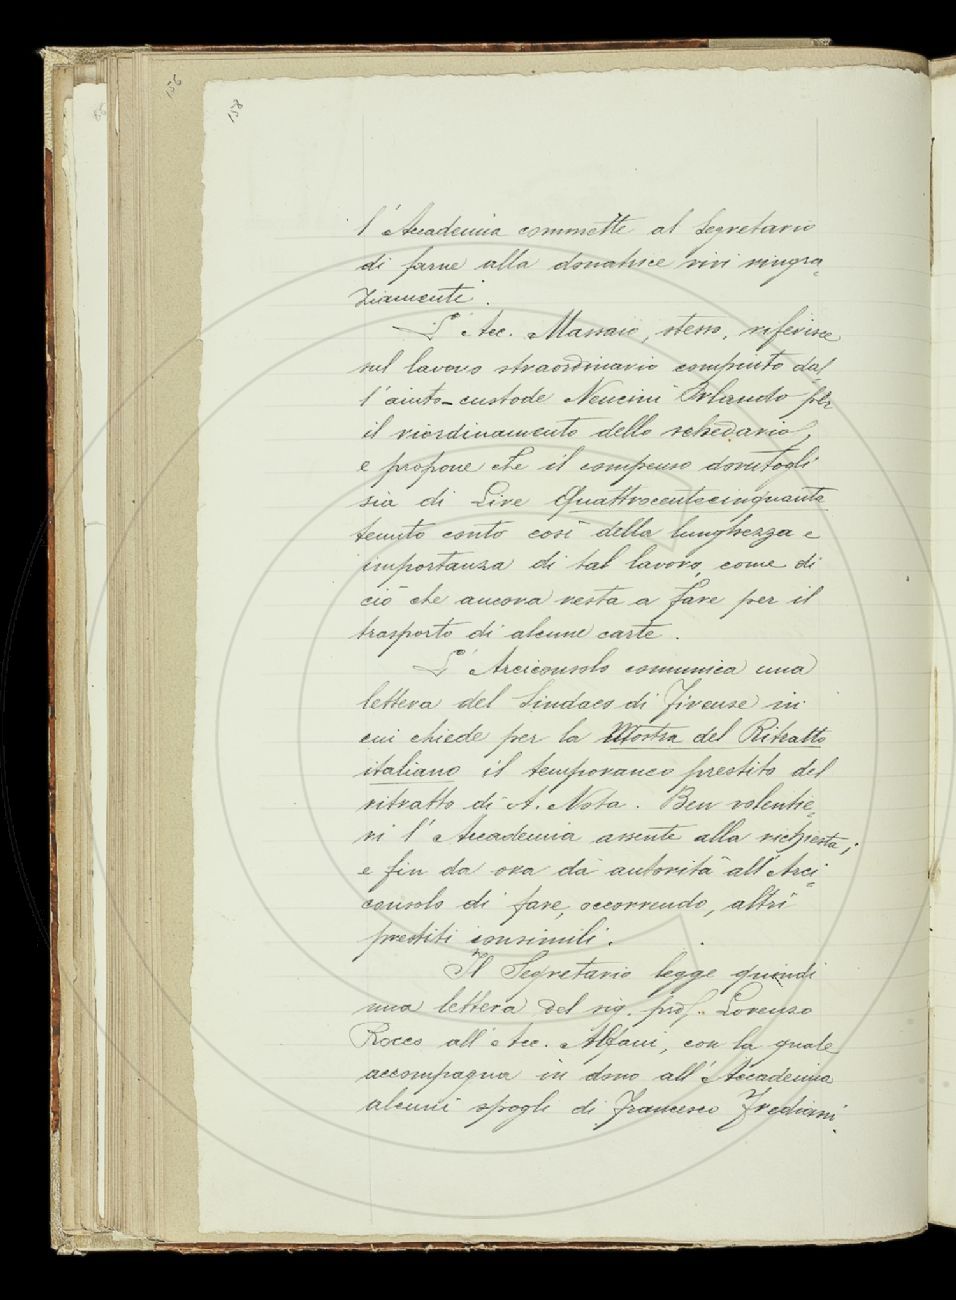 158
l'Accademia commette al Segretario
di farne alla donatrice vivi ringra-
ziamenti.
L'Acc. Massaio, stesso, riferisce
sul lavoro straordinario compiuto dal-
l'aiuto-custode Nencini Orlando per
il riordinamento dello schedario,
e propone che il compenso dovutogli
sia di Lire Quattrocentocinquanta
tenuto conto così della lunghezza e
importanza di tal lavoro, come di
ciò che ancora resta a fare per il
trasporto di alcune carte.
L'Arciconsolo comunica una
lettera del Sindaco di Firenze in
cui chiede per la Mostra del Ritratto
italiano il temporaneo prestito del
ritratto di A. Nota. Ben volentie-
ri l'Accademia assente alla richiesta;
e fin da ora dà autorità all'Arci-
consolo di fare, occorrendo, altri
prestiti consimili.
Il Segretario legge quindi
una lettera del sig. prof. Lorenzo
Rocco all'Acc. Alfani, con la quale
accompagna in dono all'Accademia
alcuni spogli di Francesco Frediani.